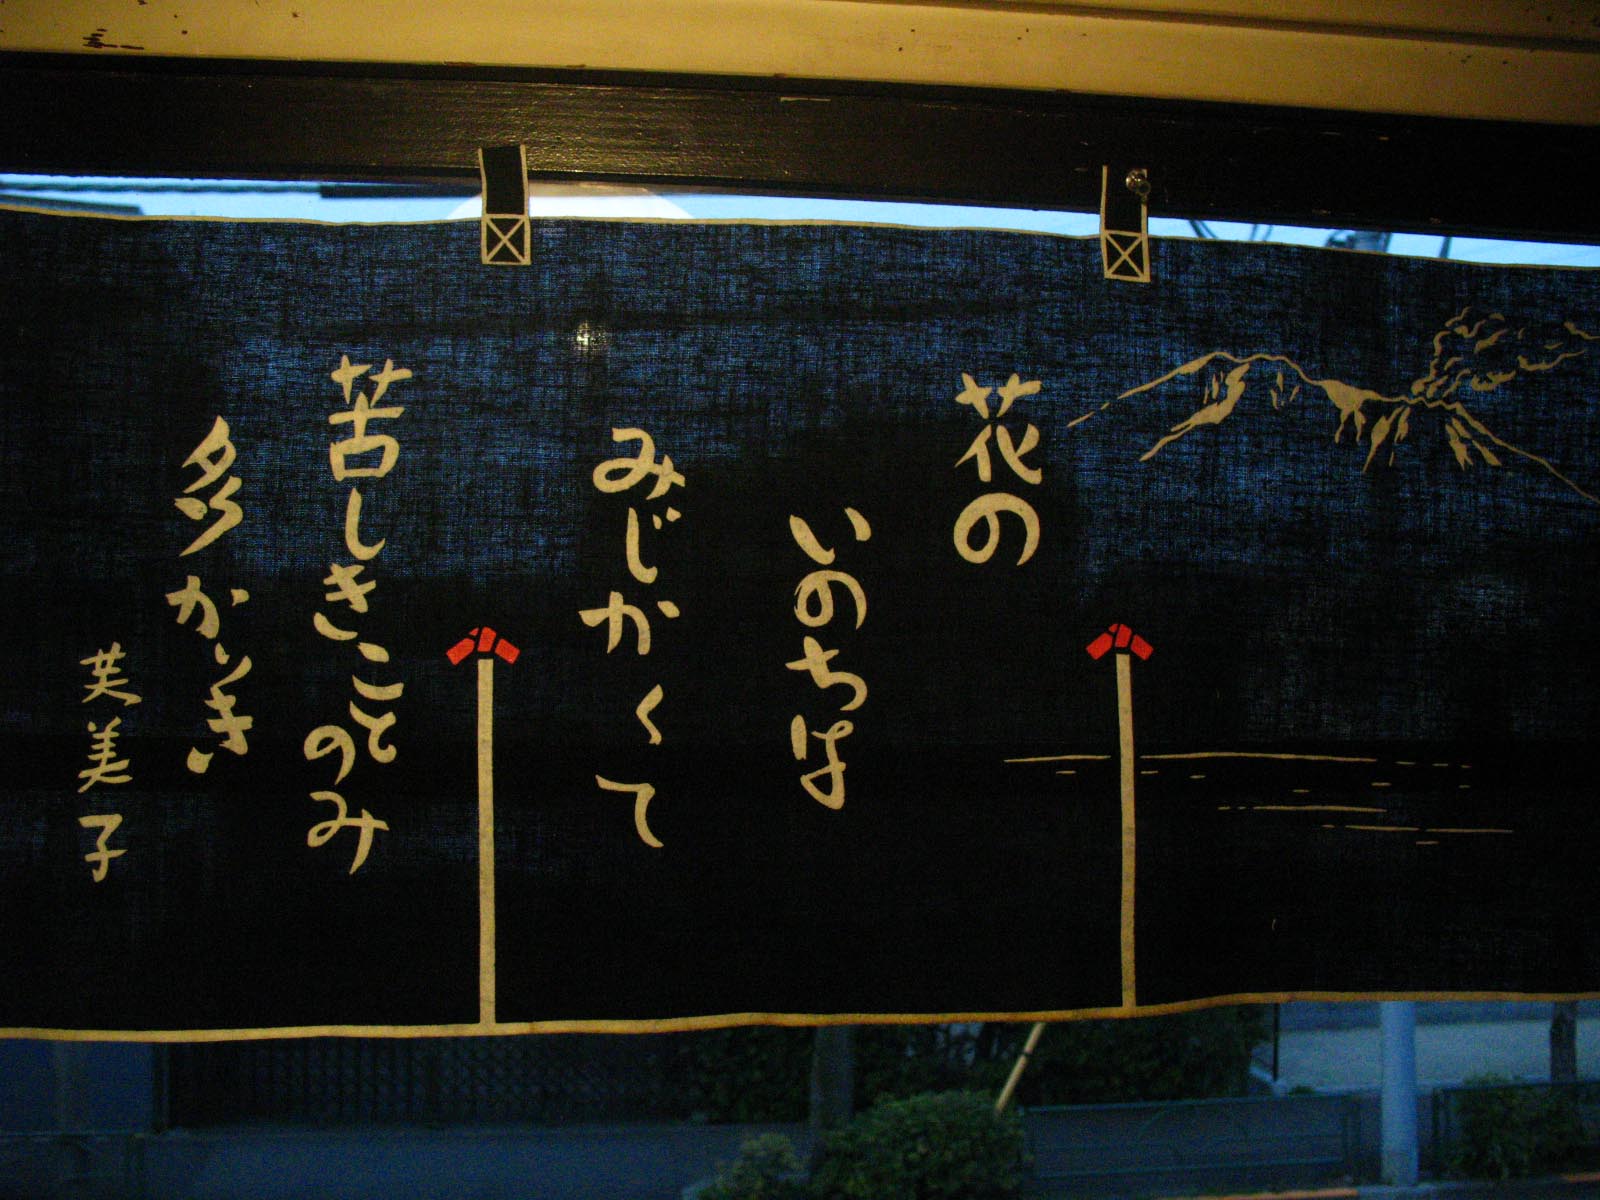 花の
いのちは
みじかくて
苦しきことのみ
多かりき
芙美子